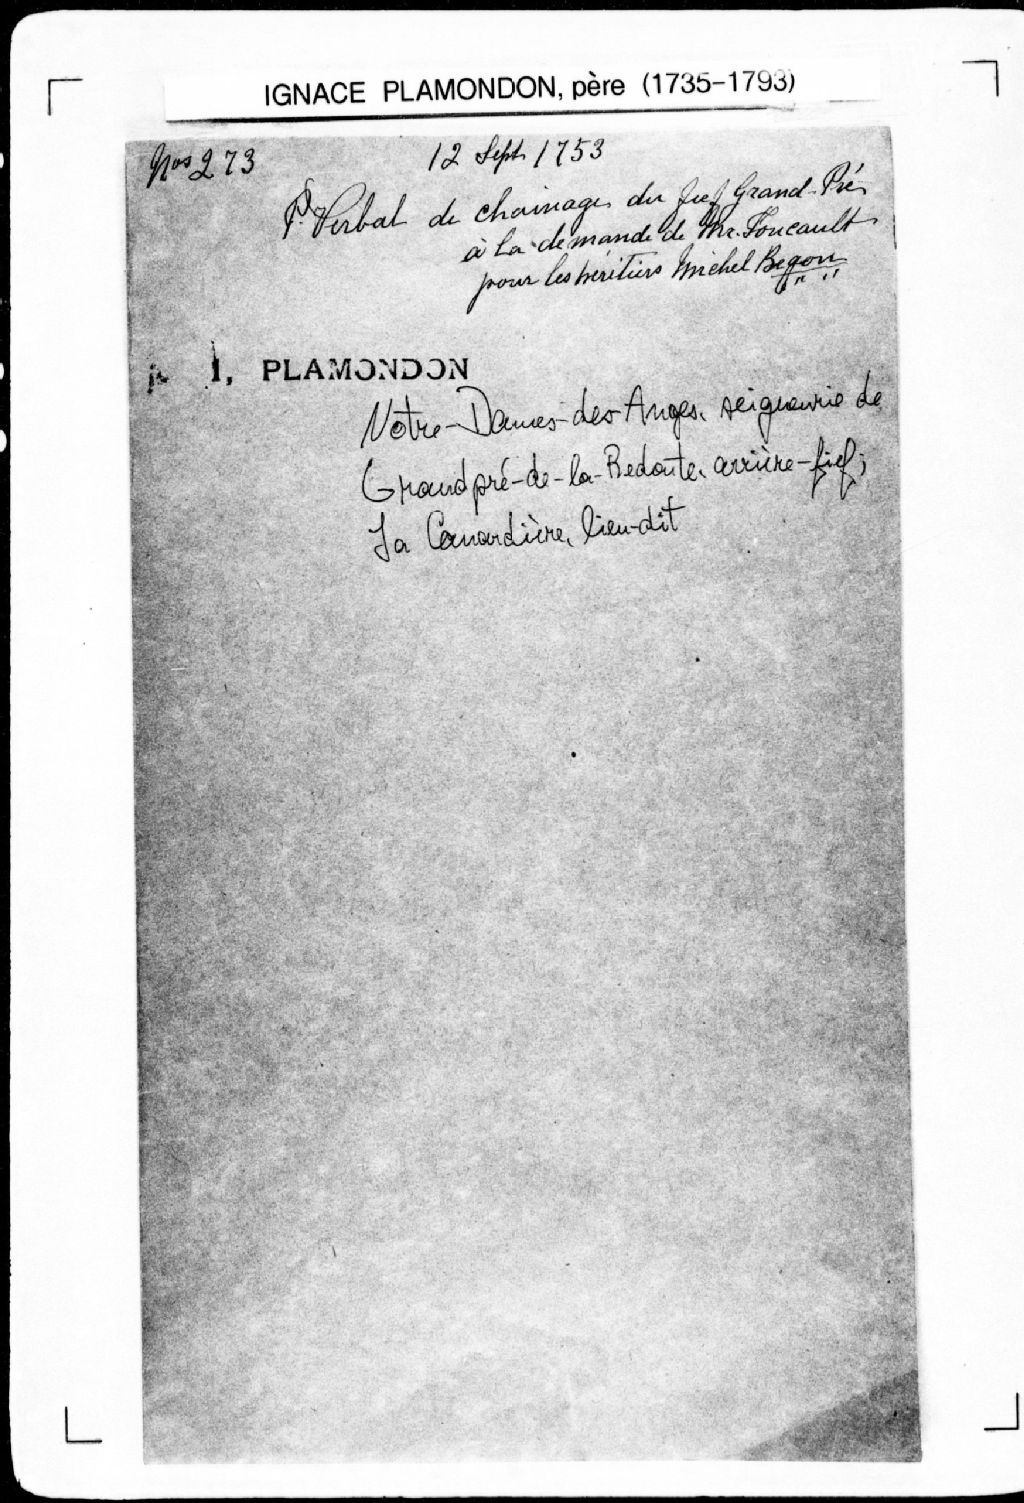 IGNACE PLAMONDON, père (1735-1793)
Nos 273 12 Sept. 1753
P. Verbal de chainage du fief Grand-Pré
à la demande de Mr. Foucault
pour les héritiers Michel Begon
I, PLAMONDON
Notre-Dames-des Anges, seigneurie de
Grandpré-de-la-Redoute, arrière-fief;
La Canardière, lieu-dit